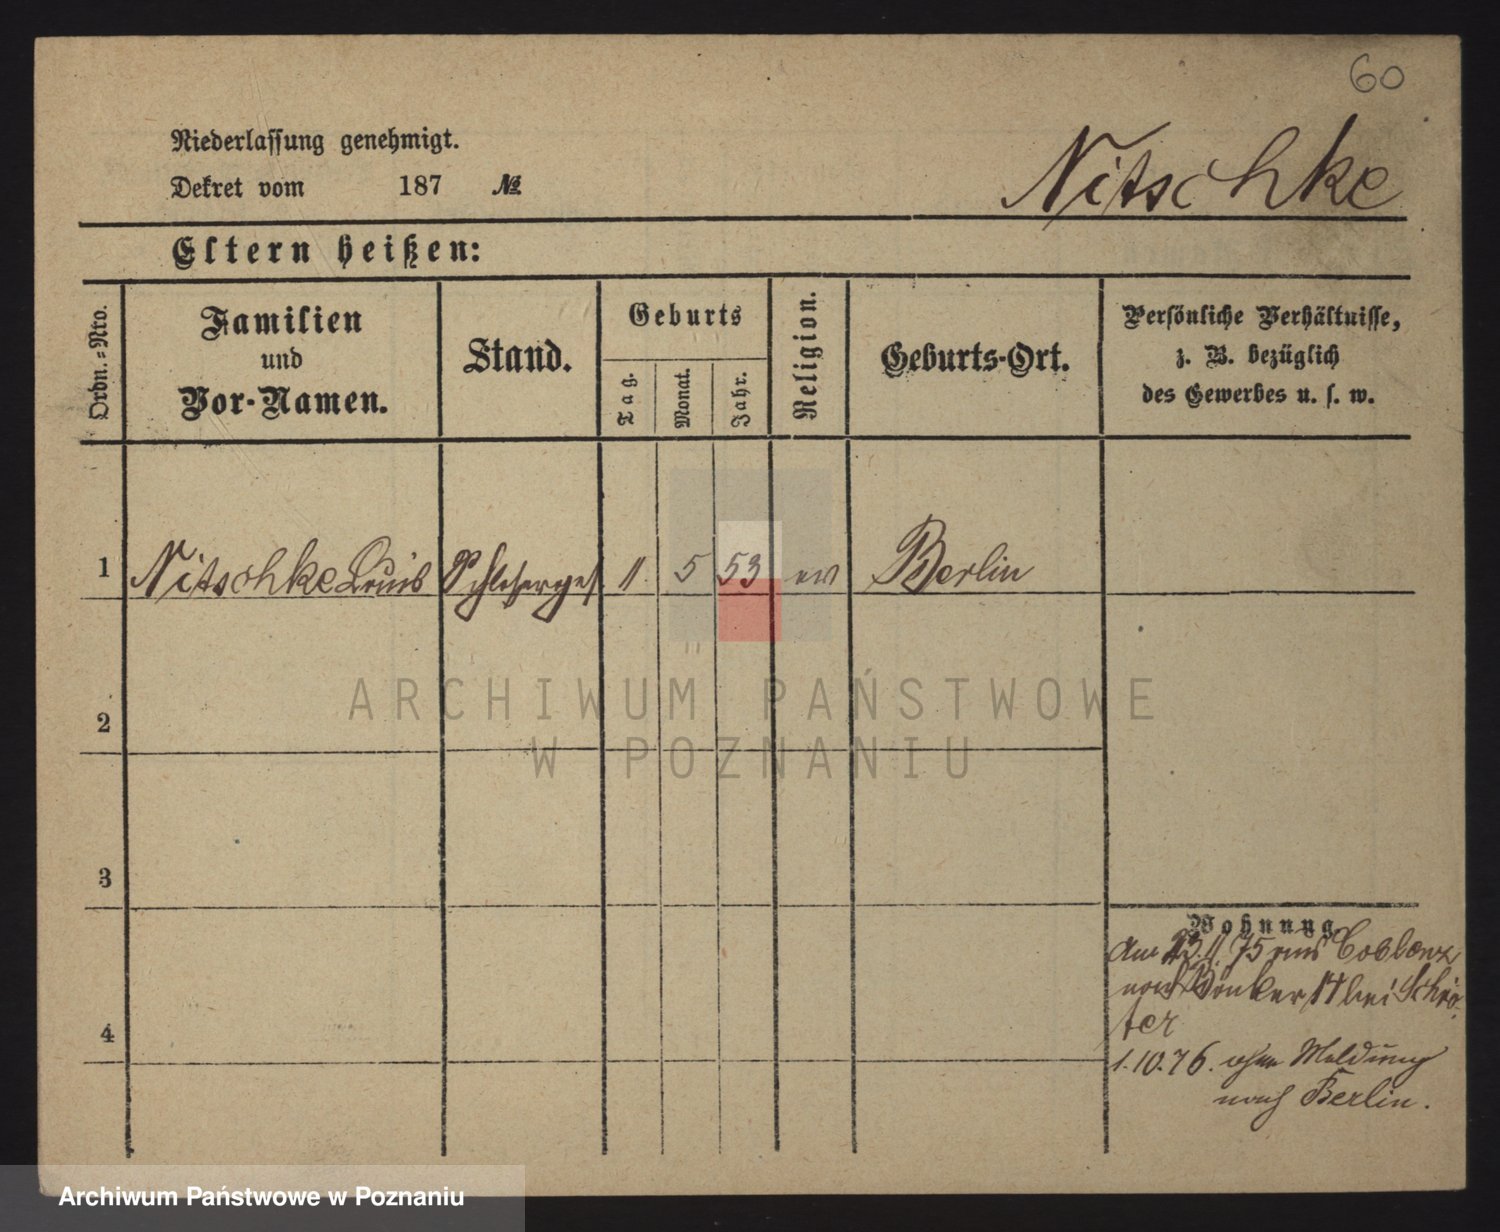 60
Niederlassung genehmigt.
Dekret vom 187 №
Nitschke
Eltern heißen:
Ordn.=Nro.
Familien
und
Vor-Namen.
Stand.
Geburts
Tag.
Monat.
Jahr.
Religion.
Geburts-Ort.
Persönliche Verhältnisse,
z. B. bezüglich
des Gewerbes u. s. w.
1 Nitschke Louis Schlosserges. 11. 5 53 ev Berlin
2
3
4
Wohnung.
Am 23.11.75 aus Coblenz
nach 14 bei Schrö-
ter
1.10.76. ohne Meldung
nach Berlin.
ARCHIWUM PAŃSTWOWE
W POZNANIU
Archiwum Państwowe w Poznaniu